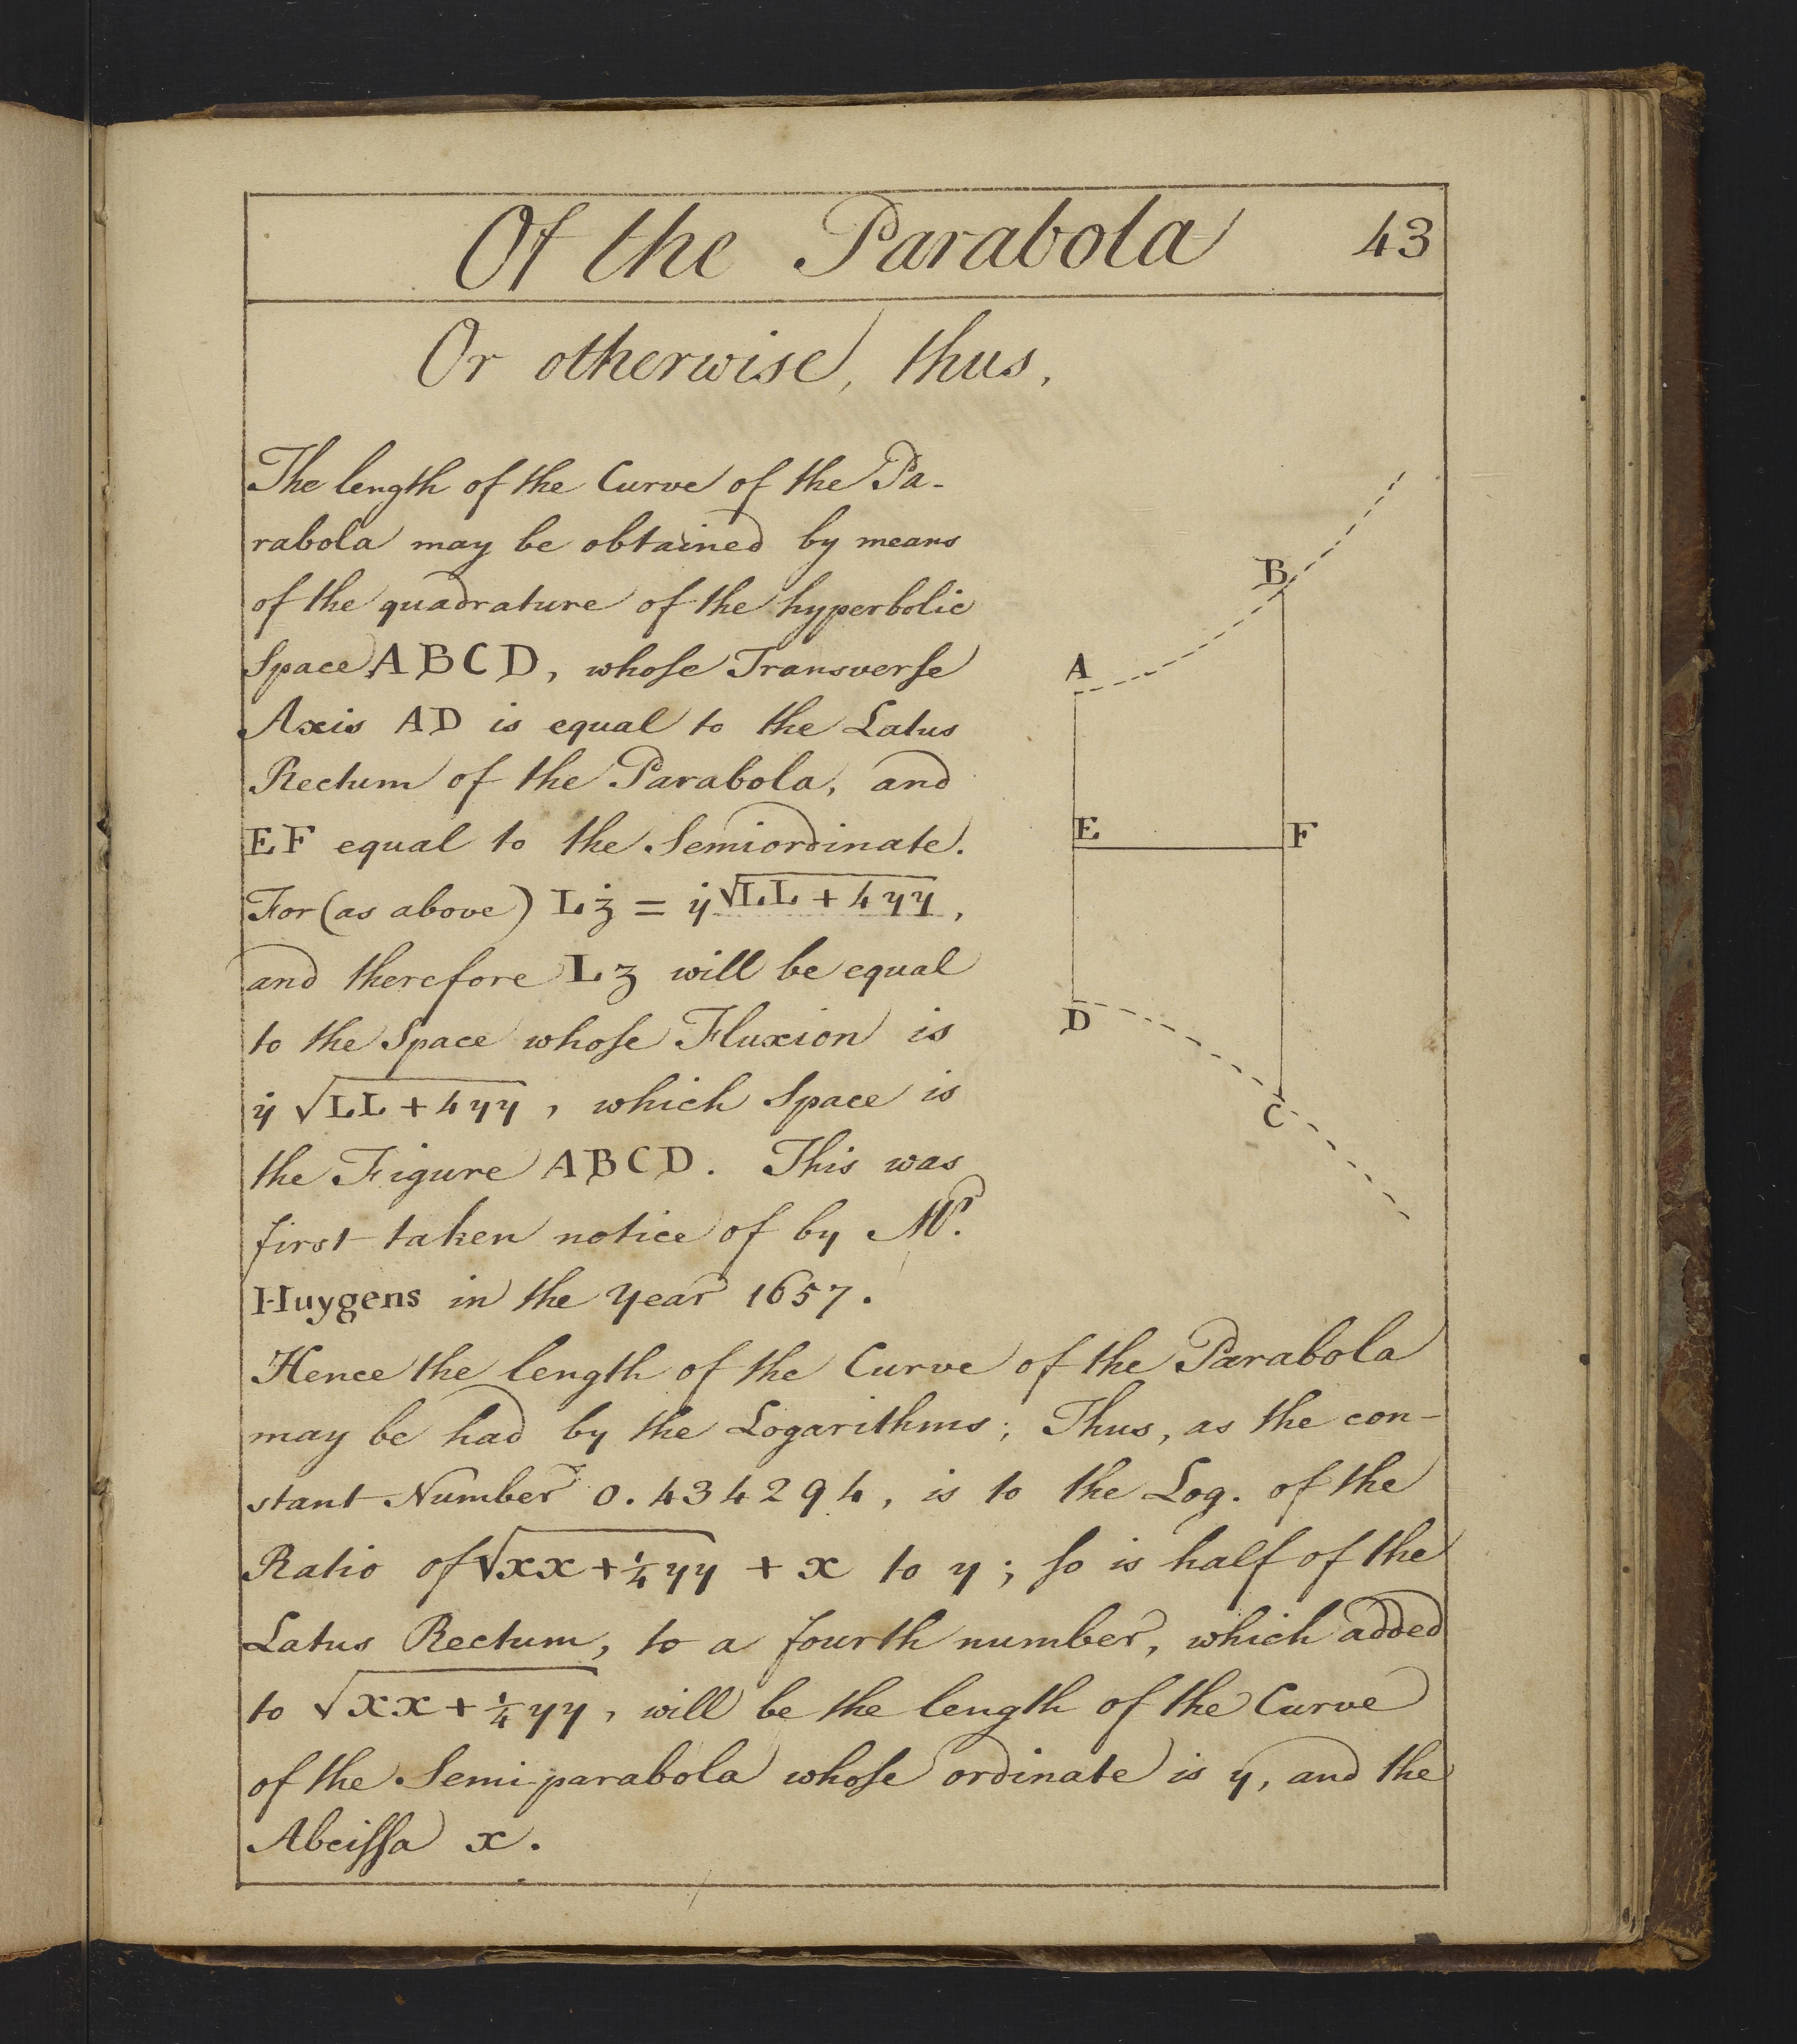 Of the Parabola 43
Or otherwise, thus,
The length of the Curve of the Pa-
rabola may be obtained by means
of the quadrature of the hyperbolic
Space ABCD, whoſe Tranſverſe
Axis AD is equal to the Latus
Rectum of the Parabola, and
EF equal to the Semiordinate.
For (as above) Lż = ẏ√LL + 4yy,
and therefore Lz will be equal
to the Space whoſe Fluxion is
ẏ √LL + 4yy, which Space is
the Figure ABCD. This was
first taken notice of by Mr.
Huygens in the Year 1657.
B
A
E F
D
C
Hence the length of the Curve of the Parabola
may be had by the Logarithms; Thus, as the con-
stant Number 0.434294, is to the Log. of the
Ratio of √xx + ¼yy + x to y; ſo is half of the
Latus Rectum, to a fourth number, which added
to √xx + ¼yy, will be the length of the Curve
of the Semi-parabola whoſe ordinate is y, and the
Abciſſa x.